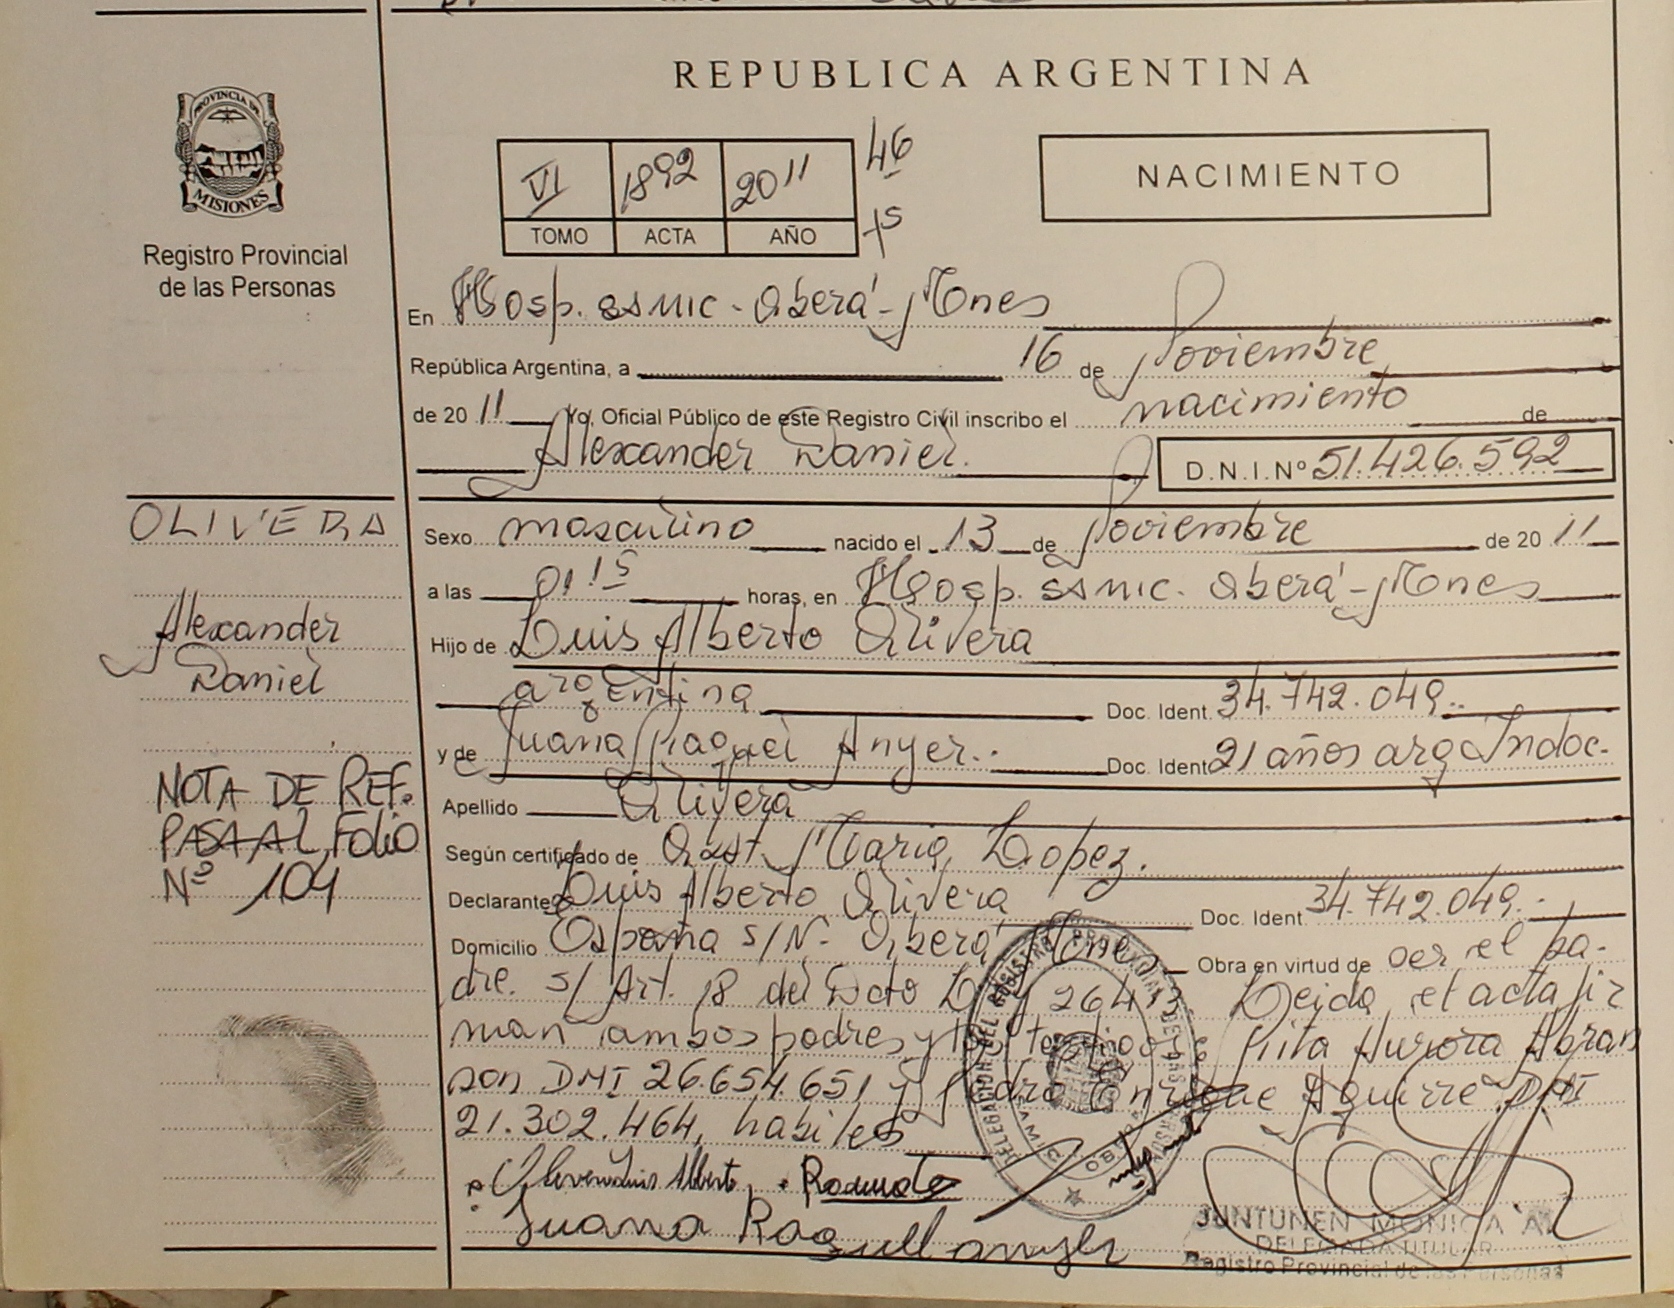 REPUBLICA ARGENTINA
PROVINCIA DE
MISIONES
Registro Provincial
de las Personas
VI 1892 2011 46
TOMO ACTA AÑO
NACIMIENTO
En Hosp. ssmic. Oberá - Mones
República Argentina, a 16 de Noviembre
de 2011 Yo, Oficial Público de este Registro Civil inscribo el nacimiento de
Alexander Daniel. D.N.I.Nº 51.426.592
OLIVERA
Alexander
Daniel
NOTA DE REF.
PASA AL FOLIO
Nº 104
Sexo masculino nacido el 13 de Noviembre de 2011
a las 01 15 horas, en Hosp. ssmic. Oberá - Mones
Hijo de Luis Alberto Olivera
argentina Doc. Ident. 34.742.049.
y de Juana Raquel Anyer. Doc. Ident 21 años arg Indoc.
Apellido Olivera
Según certificado de Obst. Maria Lopez.
Declarante Luis Alberto Olivera Doc. Ident 34.742.049.
Domicilio España s/N- Oberá Mones Obra en virtud de ser el pa-
dre. s/ Art. 18 del Dcto Ley 26413 Leida el acta fir
man ambos padres y los testigos Rita Aurora Abran
son DNI 26.654.651 y Pedro Enrique Aguirre DNI
21.302.464, habiles
Olivera Luis Alberto
Juana Raquel anyer
JUNTUNEN MONICA A.
DELEGADA TITULAR
Registro Provincial de las Personas